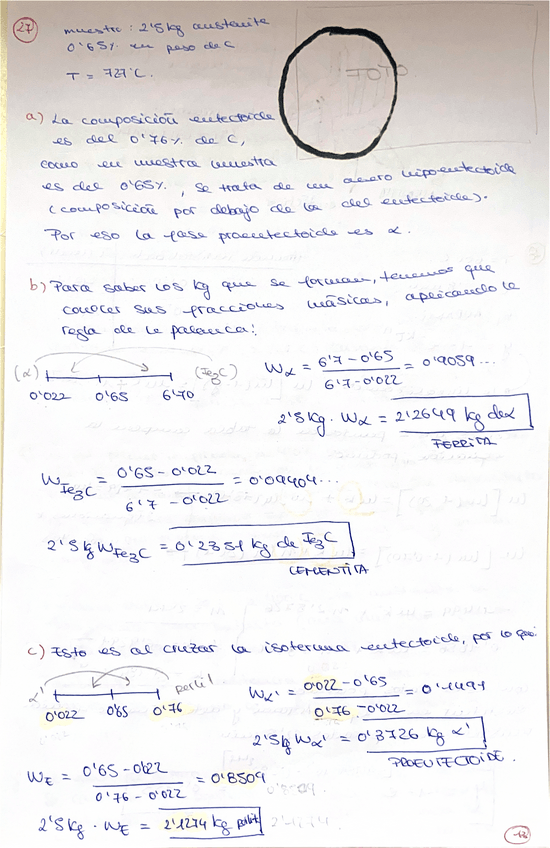 27
muestra: 2'5 kg austenita
0'65% en peso de C
T = 727°C.
TOTO
a) La composición eutectoide
es del 0'76% de C,
como en nuestra muestra
es del 0'65%, se trata de un acero hipoeutectoide
(composición por debajo de la del eutectoide).
Por eso la fase proeutectoide es α.
b) Para saber los kg que se forman, tenemos que
conocer sus fracciones másicas, aplicando la
regla de la palanca:
(α) (Fe3C)
0'022 0'65 6'70
Wα = 6'7 - 0'65 / 6'7 - 0'022 = 0'9059...
2'5 Kg · Wα = 2'2649 kg de α
FERRITA
WFe3C = 0'65 - 0'022 / 6'7 - 0'022 = 0'09404...
2'5 kg WFe3C = 0'2351 kg de Fe3C
CEMENTITA
c) Esto es al cruzar la isoterma eutectoide, por lo que:
α' perlita
0'022 0'65 0'76
Wα' = 0'022 - 0'65 / 0'76 - 0'022 = 0'1491
2'5 kg Wα' = 0'3726 kg α'
PROEUTECTOIDE.
WE = 0'65 - 0'022 / 0'76 - 0'022 = 0'8509
2'5 kg · WE = 2'1274 kg perlita